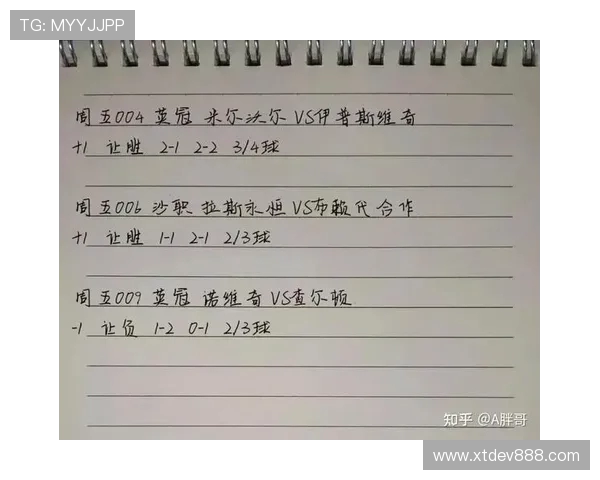 TG: MYYJJPP
周五004 英冠 米尔沃尔 VS伊普斯维奇
+1 让胜 2-1 2-2 3/4球
周五006 沙职 拉斯永恒 VS布赖代合作
+1 让胜 1-1 2-1 2/3球
周五009 英冠 诺维奇 VS查尔顿
-1 让负 1-2 0-1 2/3球
知乎 @A胖哥
www.xtdev888.com